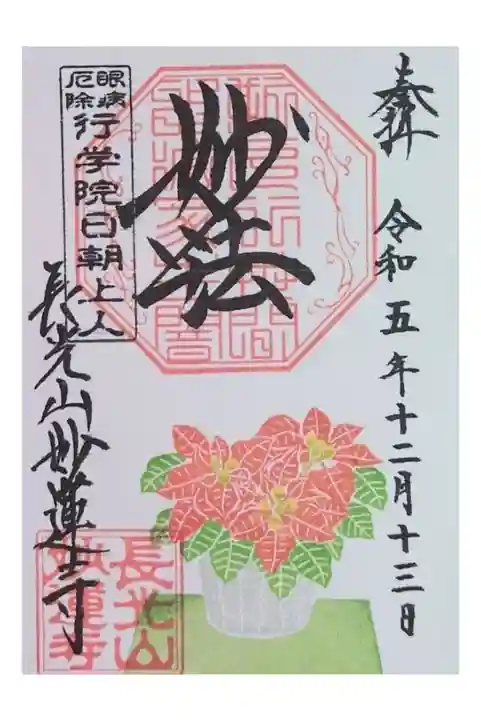 奉拝
令和五年十二月十三日
妙法
眼病
厄除
行学院日朝上人
長光山妙蓮寺
長光山
妙蓮寺